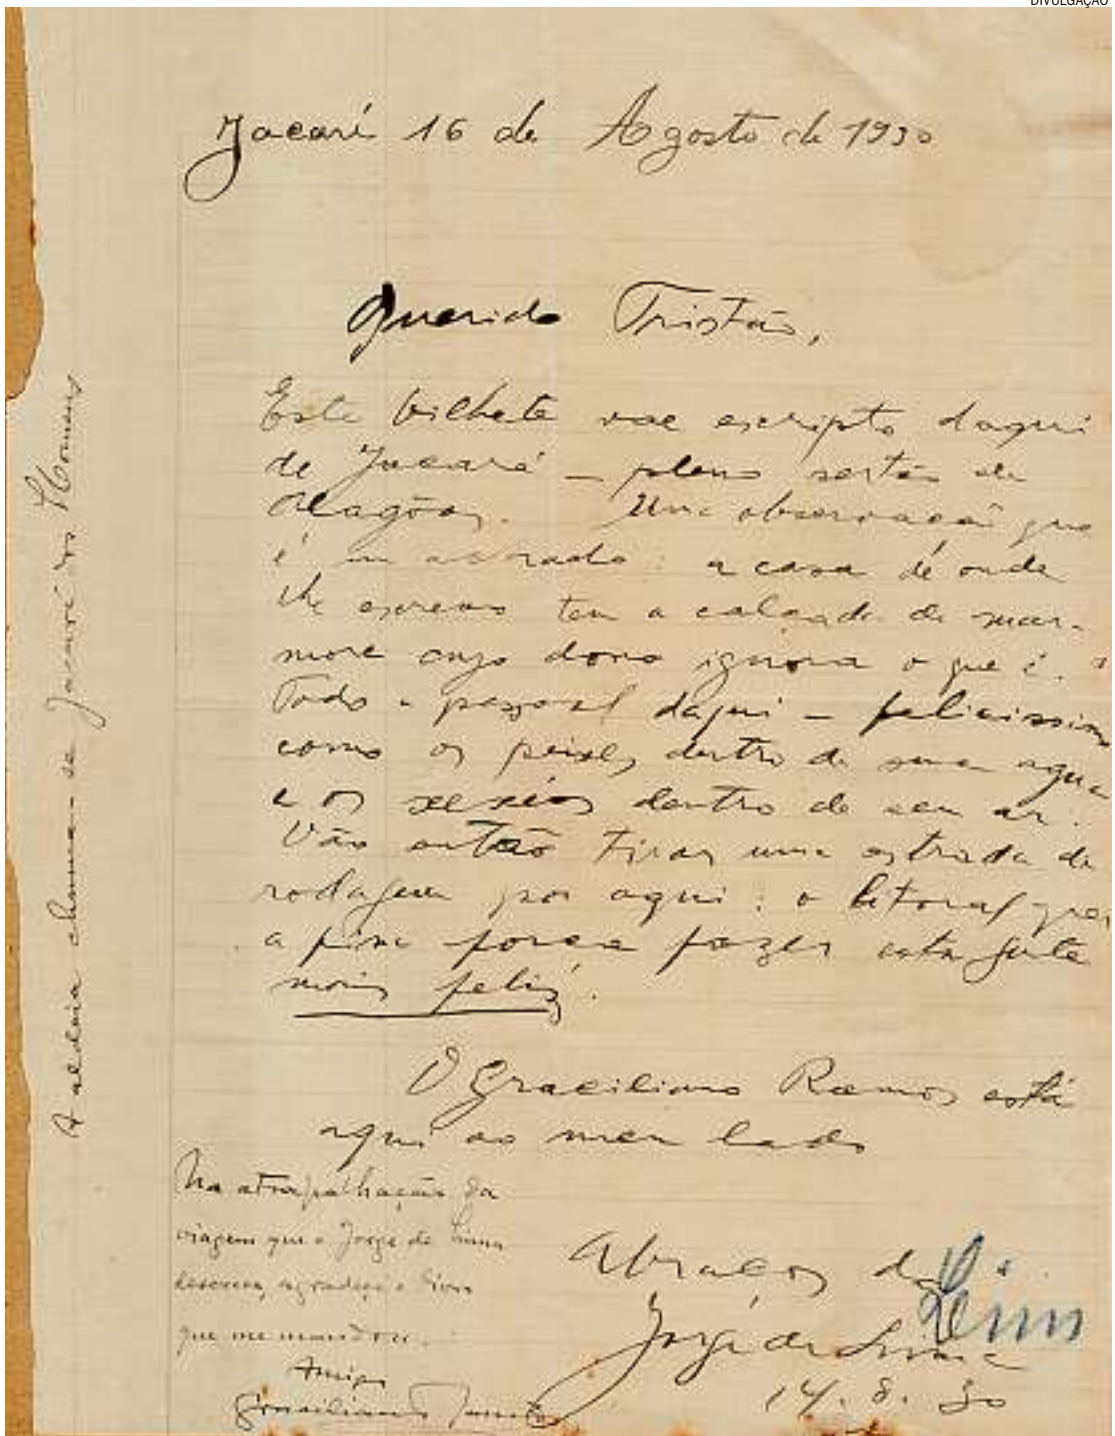 DIVULGAÇÃO
Jacaré 16 de Agosto de 1930
Querido Tristão,
Este bilhete vae escripto daqui
de Jacaré – pleno sertão de
Alagôas. Uma observação que
é um : a casa de onde
lhe escrevo tem a calçada de mar-
more cujo dono ignora o que é.
Todo o pessoal daqui – felicissimo
como os peixes dentro de sua agua
e os xexéos dentro de seu ar.
Vão então tirar uma estrada de
rodagem por aqui: o litoral quer
a fina força fazer esta gente
mais feliz.
O Graciliano Ramos está
aqui ao meu lado
Abraços do
Jorge de Lima
14.8.30
Na atrapalhação da
viagem que o Jorge de Lima
descreveu, agradeço o livro
que me mandou.
Amigo
Graciliano Ramos
A aldeia chama-se Jacaré dos Homens